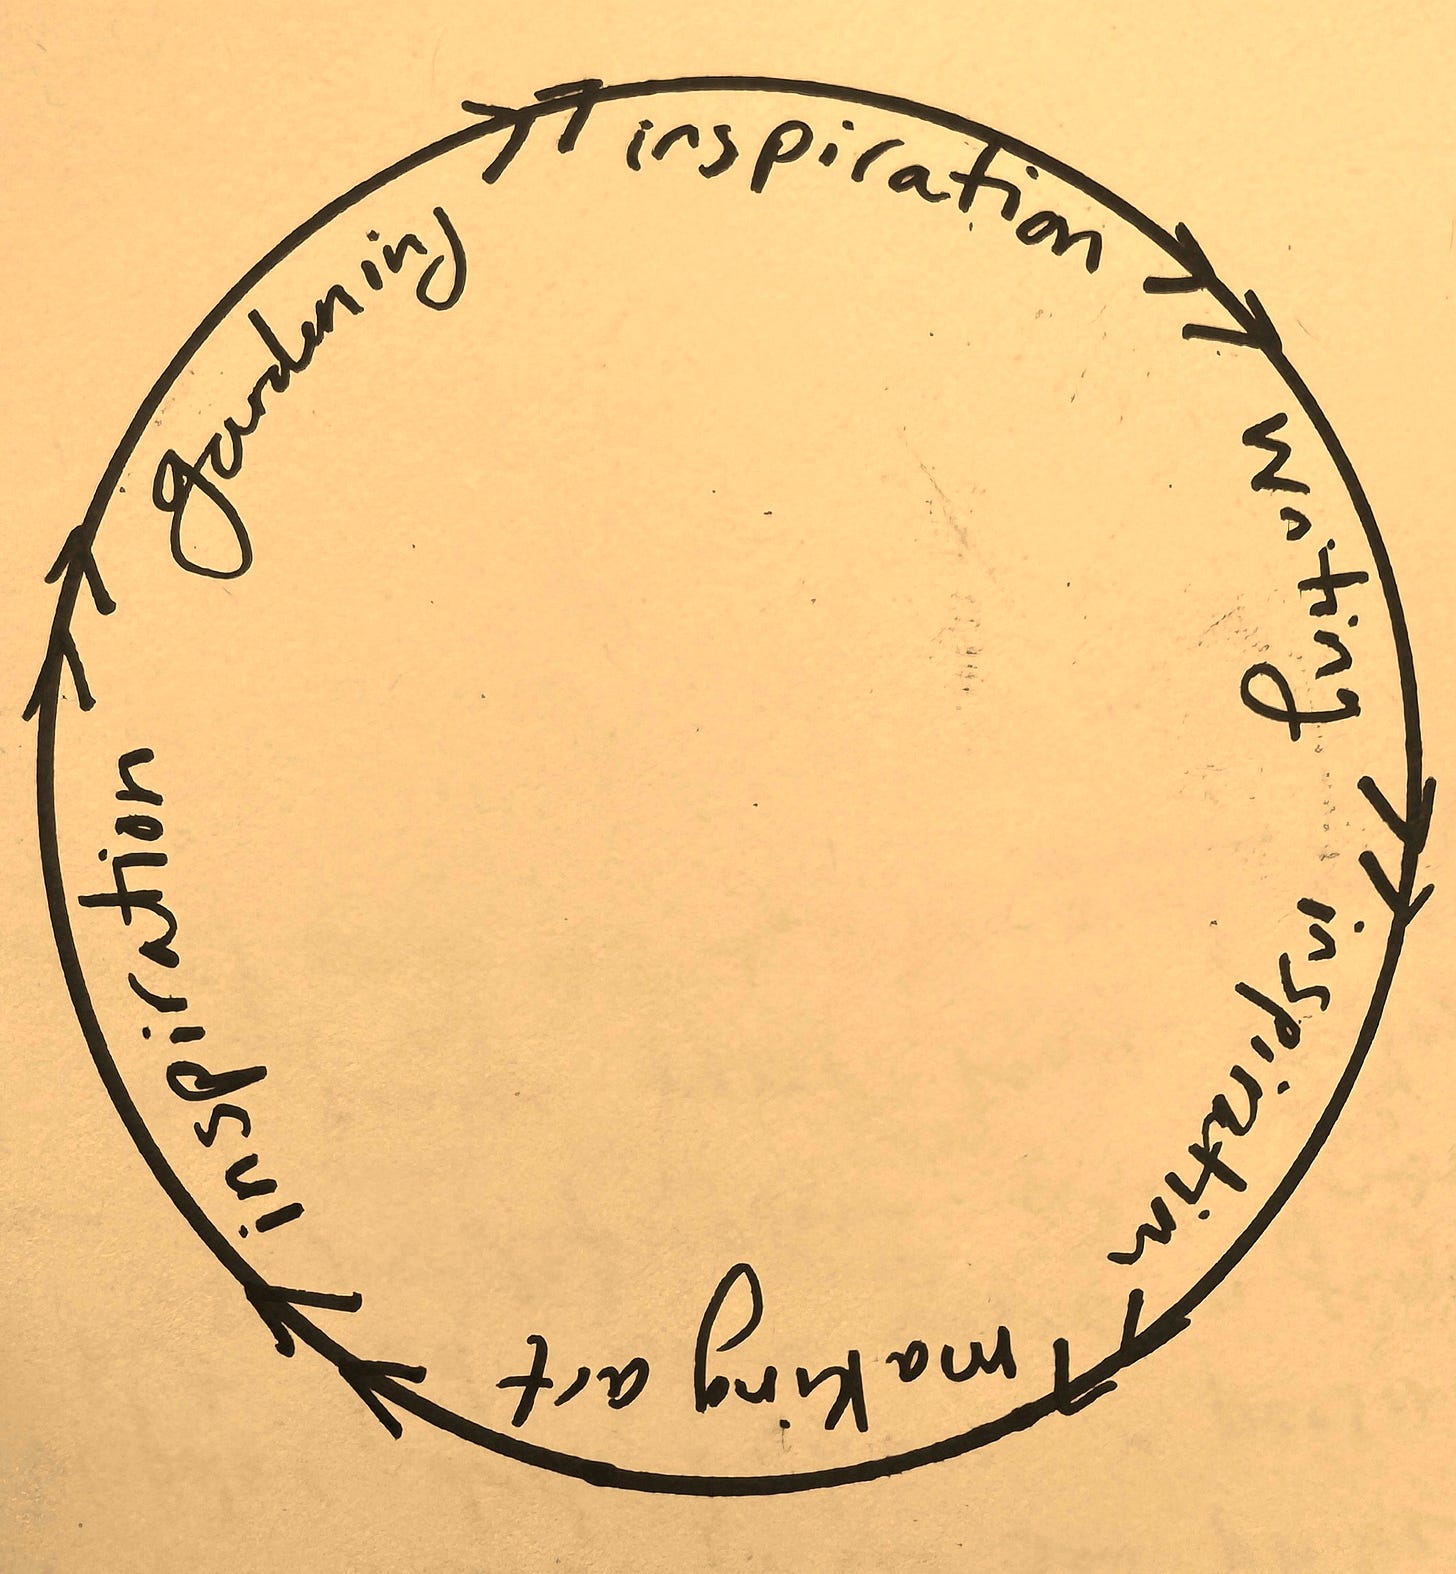 inspiration
writing
inspiration
making art
inspiration
gardening